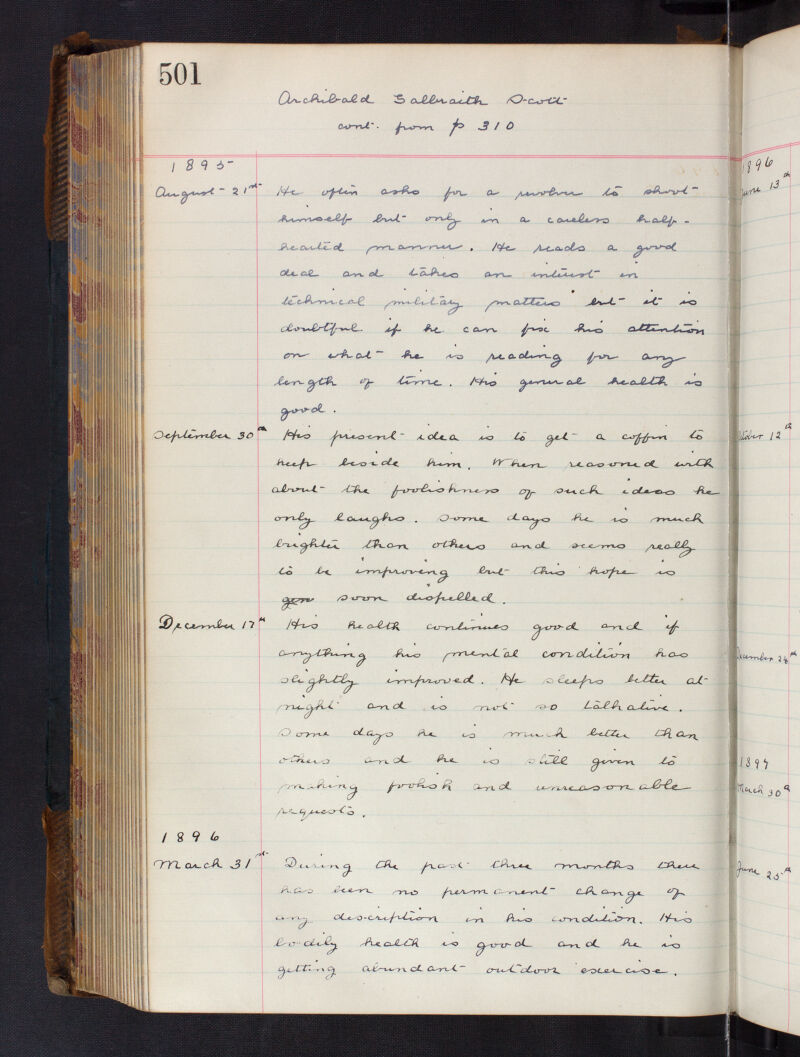 501
Archibald Galbraith Scott
cont. from p 310
1895
August 21st He often asks for a revolver to shoot
himself but only in a careless half-
hearted manner. He reads a good
deal and takes an interest in
technical military matters but it is
doubtful if he can fix his attention
on what he is reading for any
length of time. His general health is
good.
September 30th His present idea is to get a coffin to
keep beside him. When reasoned with
about the foolishness of such ideas he
only laughs. Some days he is much
brighter than others and seems really
to be improving but this hope is
soon dispelled.
December 17th His health continues good and if
anything his mental condition has
slightly improved. He sleeps better at
night and is not so talkative.
Some days he is much better than
others and he is still given to
making foolish and unreasonable
requests.
1896
March 31st During the past three months there
has been no permanent change of
any description in his condition. His
bodily health is good and he is
getting abundant outdoor exercise.
1896
June 13th
October 12th
December 24th
1897
March 30th
June 25th